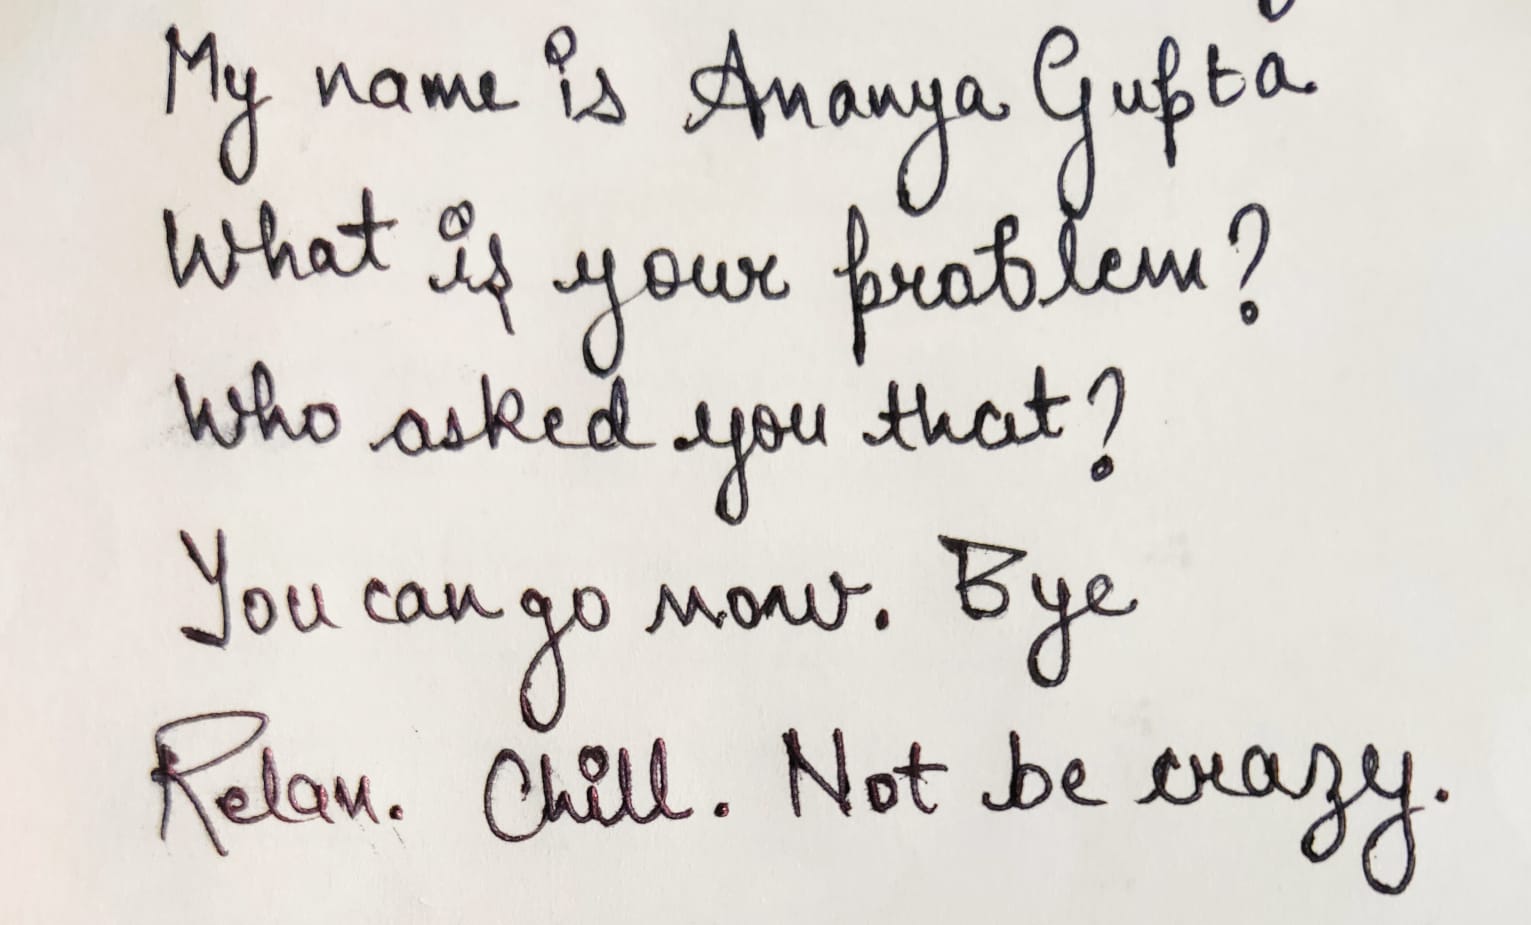 My name is Ananya Gupta
What is your problem?
Who asked you that?
You can go now. Bye
Relan. Chill. Not be crazy.